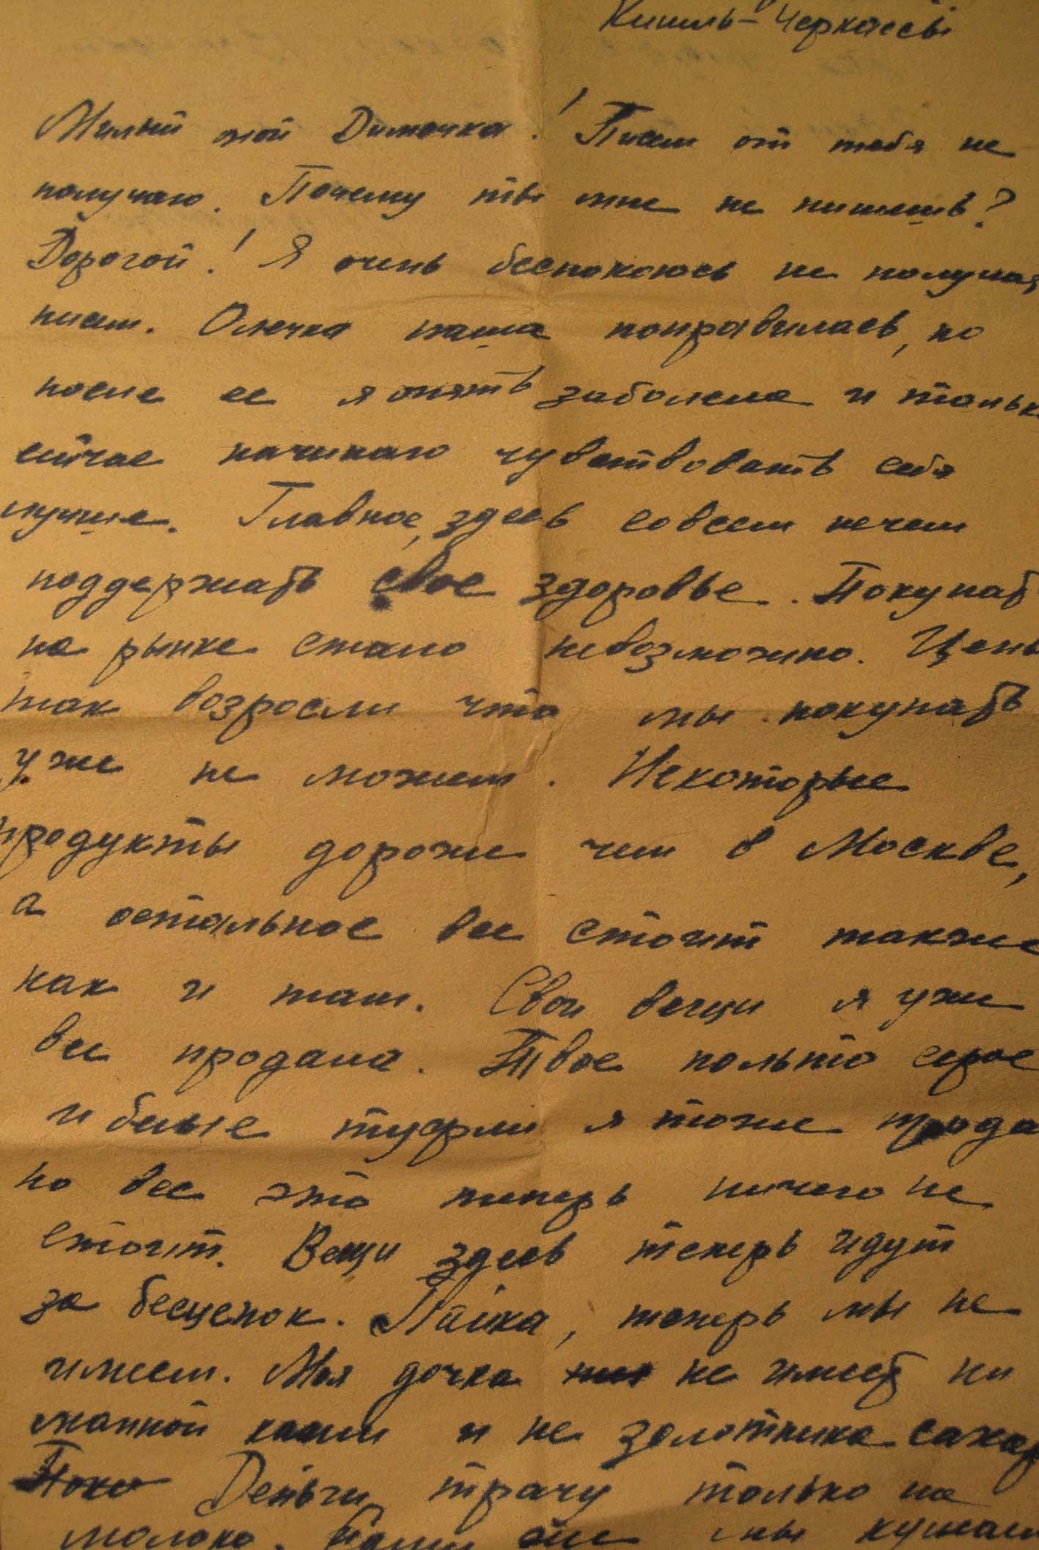 Кинель-Черкассы
Милый мой Димочка! Писем от тебя не
получаю. Почему ты мне не пишешь?
Дорогой! Я очень беспокоюсь не получая
писем. Олечка наша поправилась, но
после ее я опять заболела и тольк
сейчас начинаю чувствовать себя
лучше. Главное, здесь совсем нечем
поддержать свое здоровье. Покупат
на рынке стало невозможно. Цены
так возросли что мы покупать
уже не можем. Некоторые
продукты дороже чем в Москве,
а остальное все стоит также
как и там. Свои вещи я уже
все продала. Твое польто серое
и белые туфли я тоже прода
но все это теперь ничего не
стоит. Вещи здесь теперь идут
за бесценок. Пайка, теперь мы не
имеем. Моя дочка не имеет ни
манной каши и не золотника сахар
Деньги трачу только на
молоко. мы кушаем